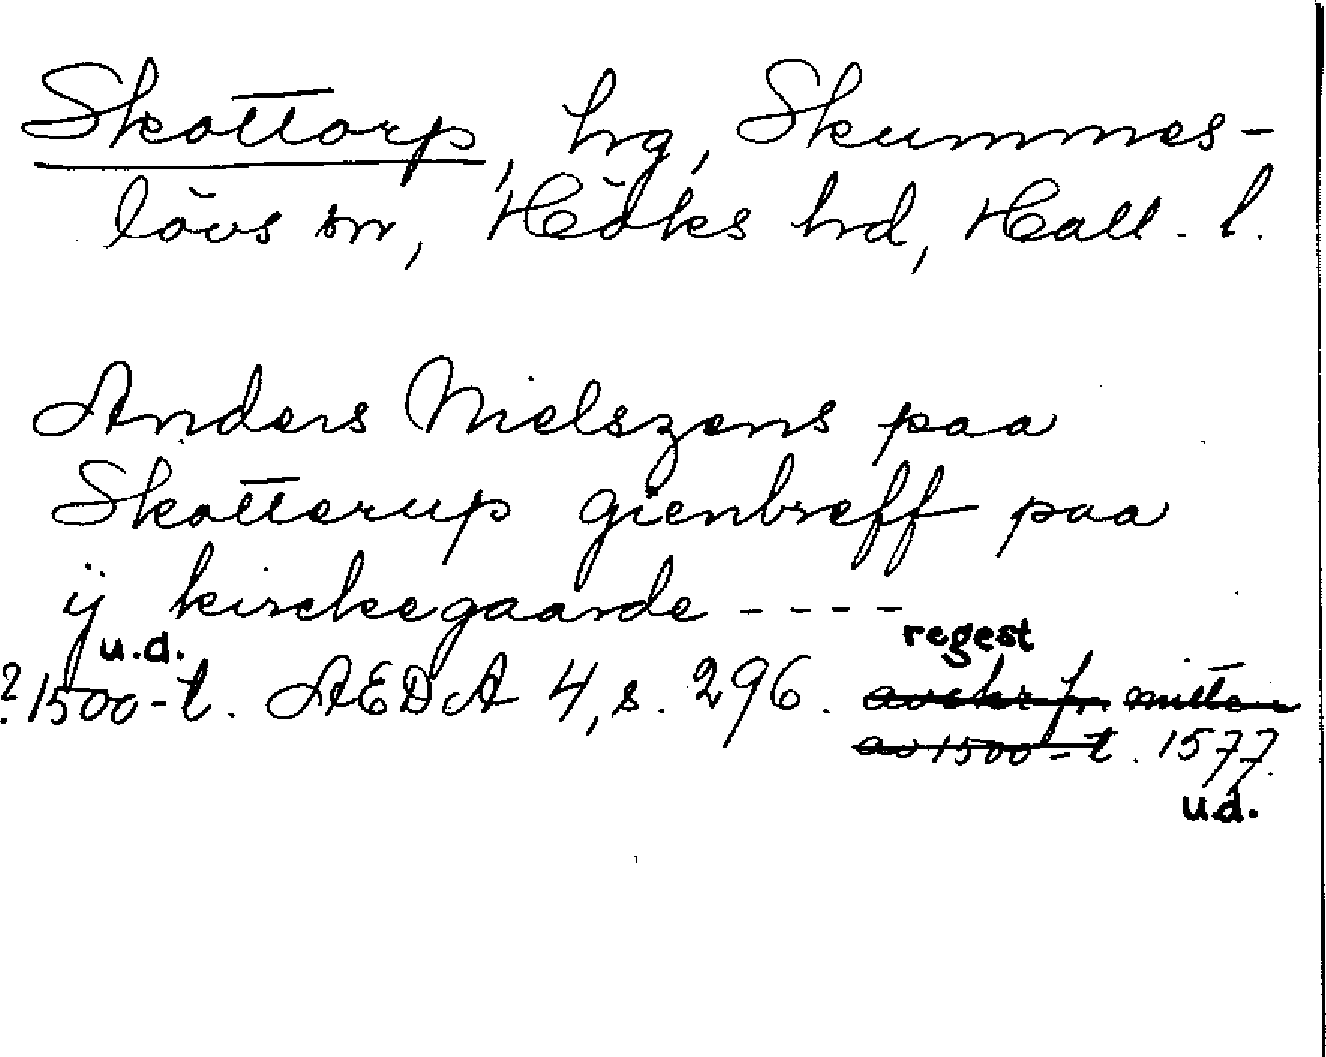 Skottorp, hrg, Skummes-
lövs sn, Höks hrd, Hall. l.
Anders Nielszens paa
Skotterup gienbreff paa
ij kirckegaarde ----
u.d. regest
? 1500-t. AEDA 4, s. 296. avskr fr. mitten
av 1500-t. 1577.
u.d.